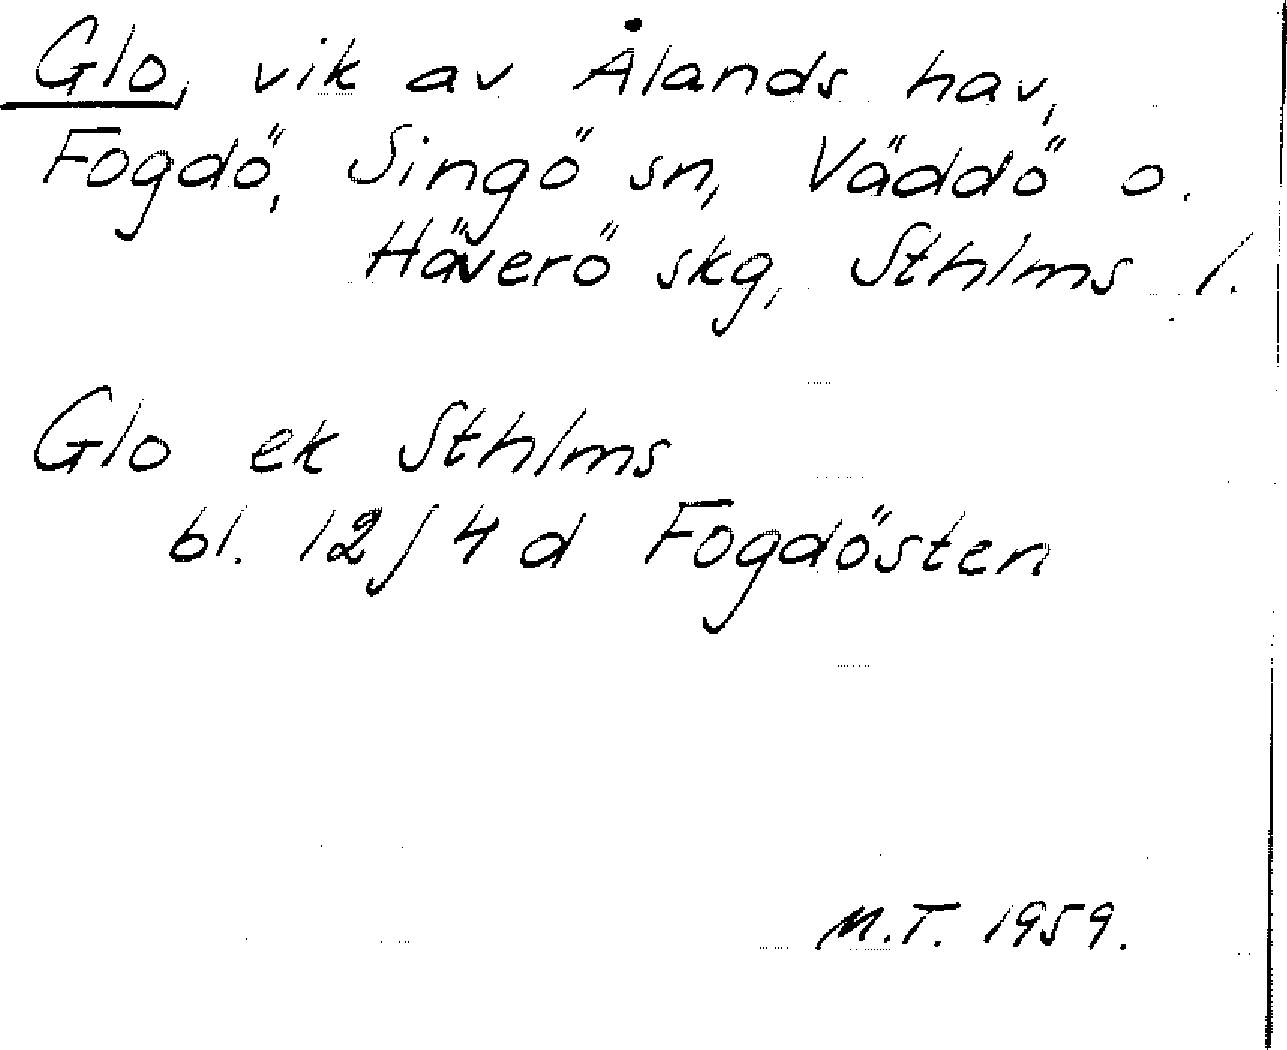 Glo, vik av Ålands hav,
Fogdö, Singö sn, Väddö o.
Häverö skg, Sthlms l.
Glo ek Sthlms
bl. 12J4d Fogdösten
M.T. 1959.